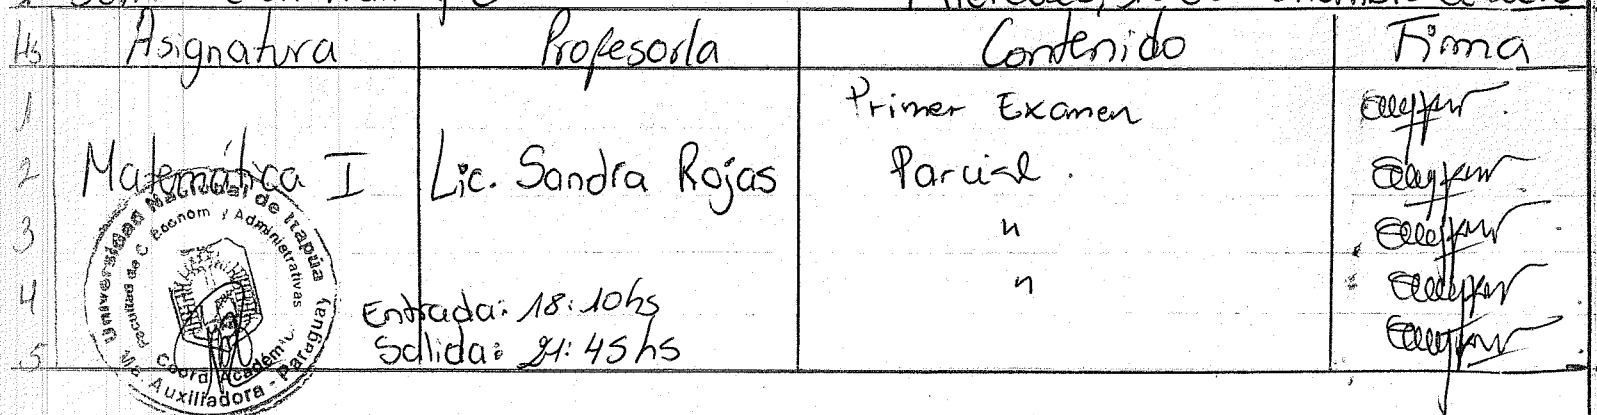 Hs Asignatura Profesor/a Contenido Firma
1 Primer Examen
2 Matemática I Lic. Sandra Rojas Parcial.
3 "
4 "
Entrada: 18:10hs
5 Salida: 21:45hs
Universidad Nacional de Itapúa
Escuela de C. Econom y Administrativas
Coord Académic
Ma Auxiliadora - Paraguay